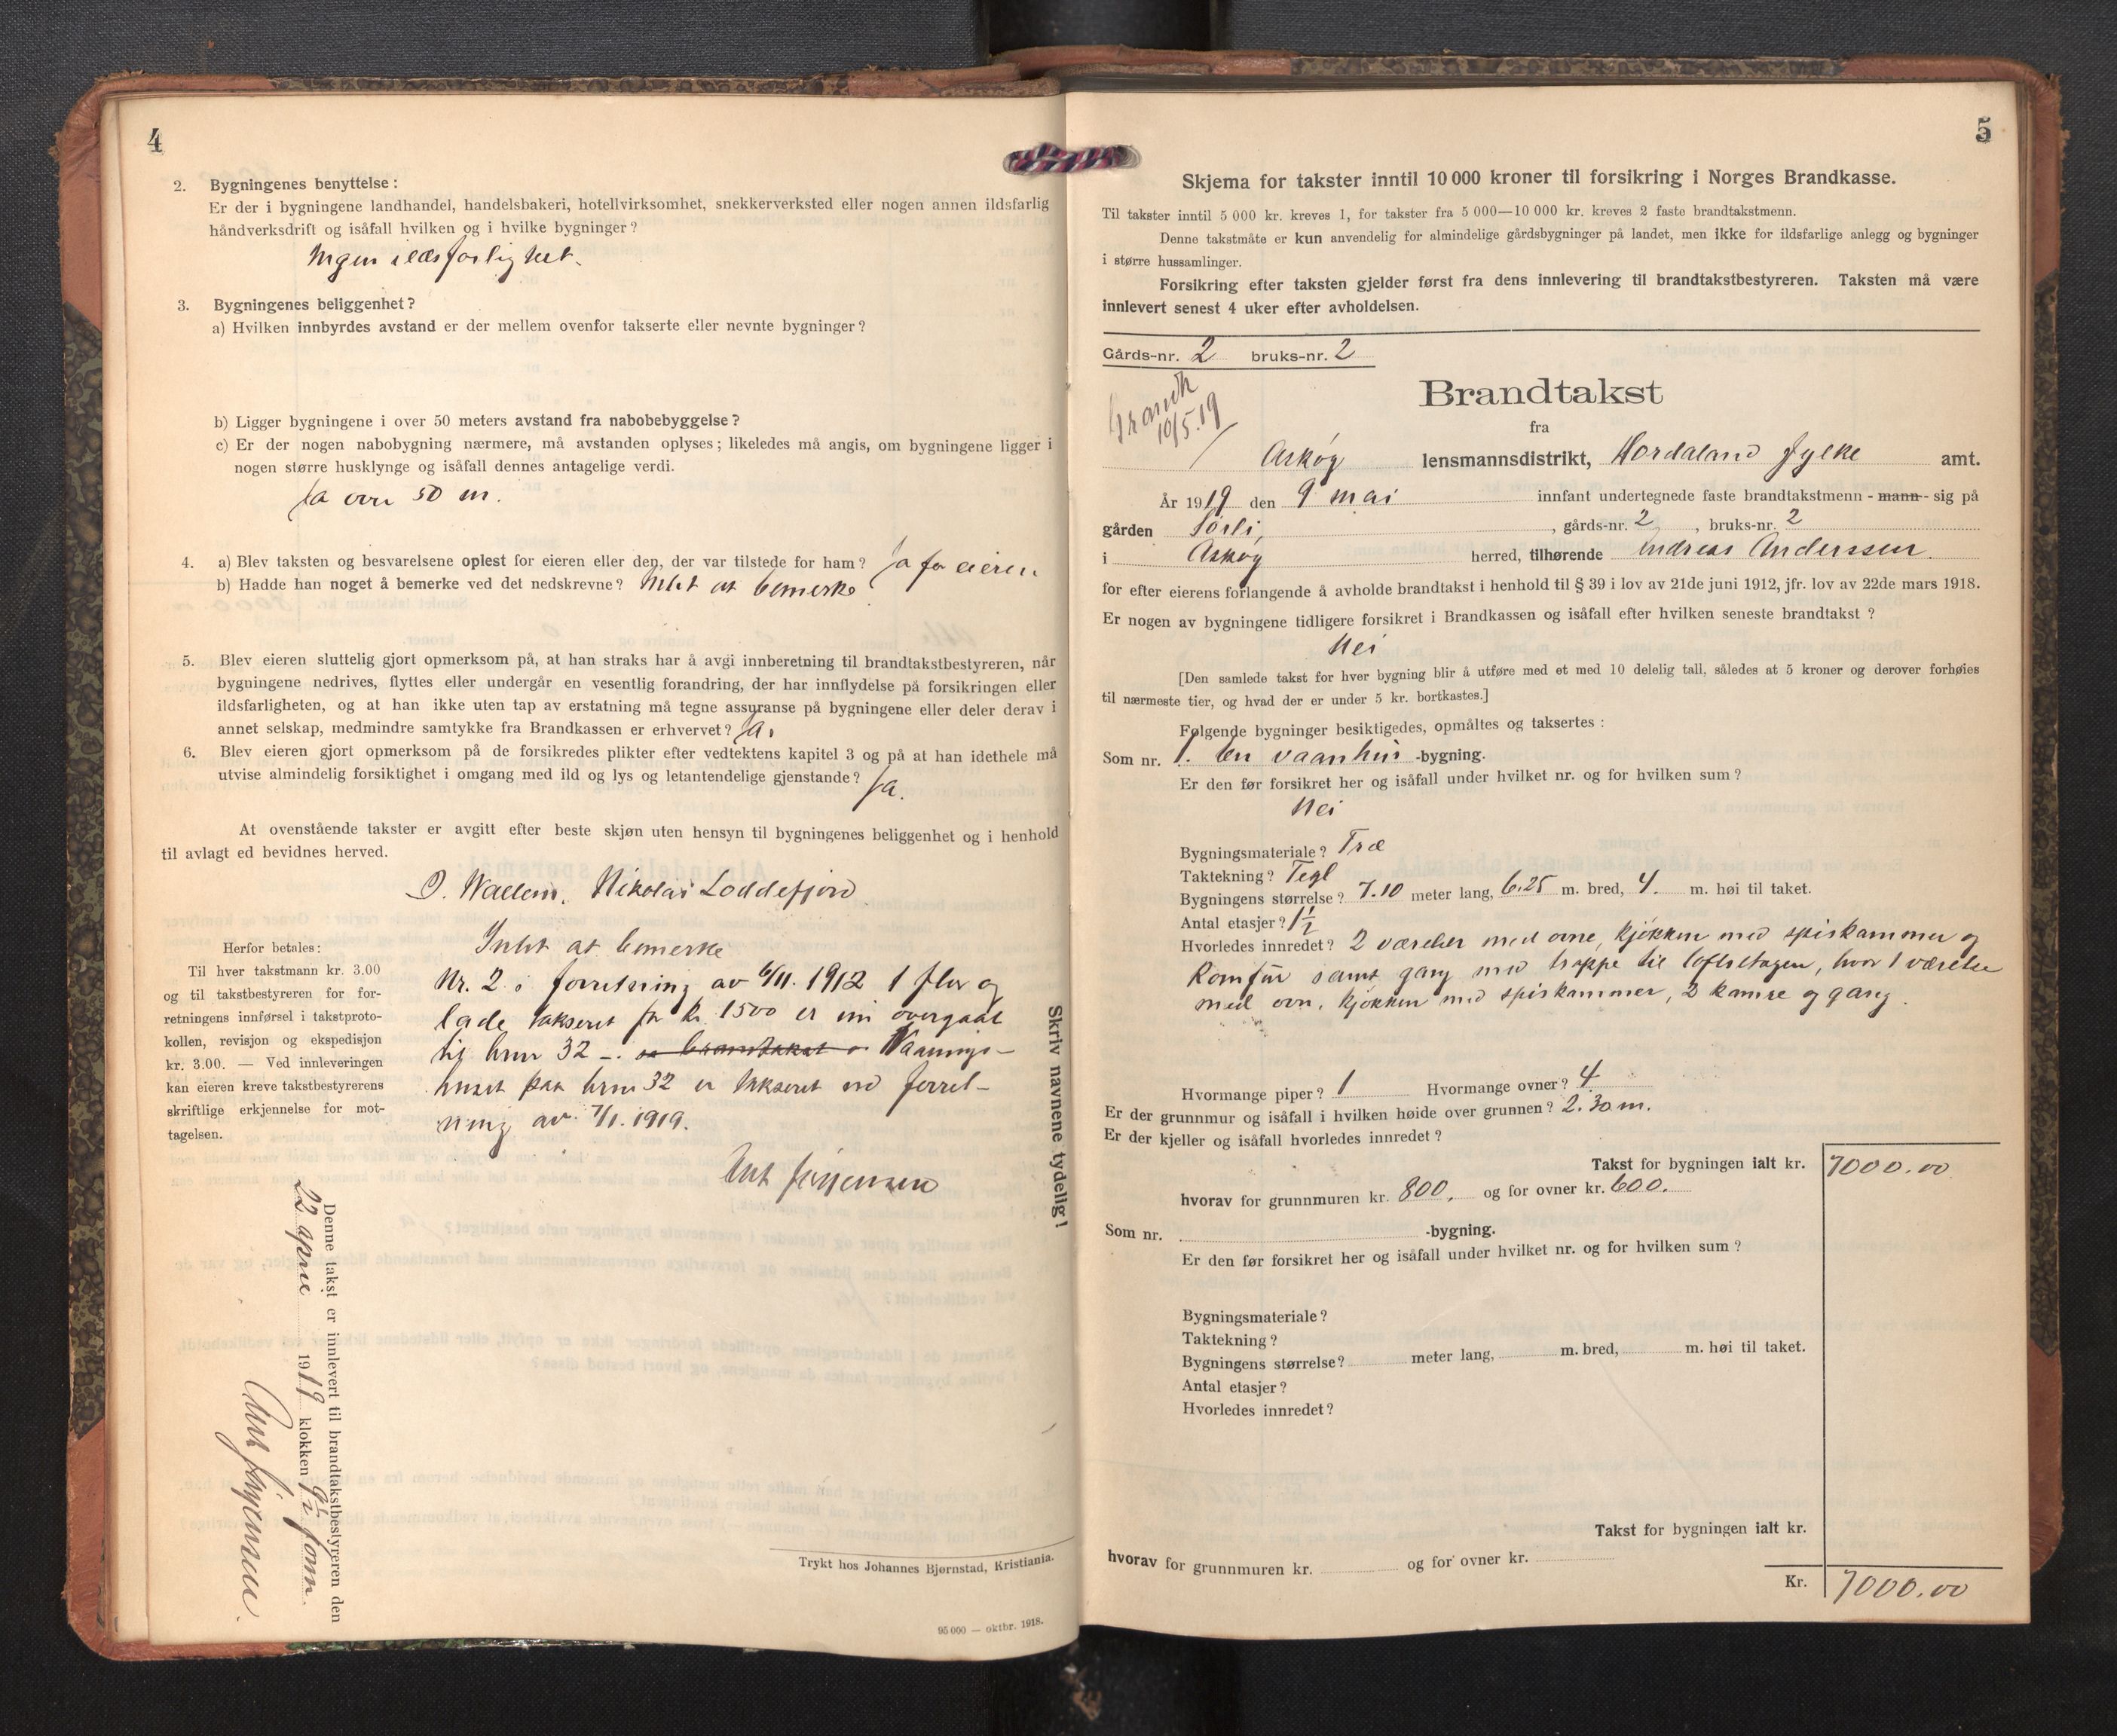 4
2. Bygningenes benyttelse:
Er der i bygningene landhandel, handelsbakeri, hotellvirksomhet, snekkerverksted eller nogen annen ildsfarlig
håndverksdrift og isåfall hvilken og i hvilke bygninger?
Ingen ildsfarlighet.
3. Bygningenes beliggenhet?
a) Hvilken innbyrdes avstand er der mellem ovenfor takserte eller nevnte bygninger?
b) Ligger bygningene i over 50 meters avstand fra nabobebyggelse?
c) Er der nogen nabobygning nærmere, må avstanden oplyses; likeledes må angis, om bygningene ligger i
nogen større husklynge og isåfall dennes antagelige verdi.
Ja over 50 m.
4. a) Blev taksten og besvarelsene oplest for eieren eller den, der var tilstede for ham? Ja for eieren
b) Hadde han noget å bemerke ved det nedskrevne? Intet at bemerke
5. Blev eieren sluttelig gjort opmerksom på, at han straks har å avgi innberetning til brandtakstbestyreren, når
bygningene nedrives, flyttes eller undergår en vesentlig forandring, der har innflydelse på forsikringen eller
ildsfarligheten, og at han ikke uten tap av erstatning må tegne assuranse på bygningene eller deler derav i
annet selskap, medmindre samtykke fra Brandkassen er erhvervet? Ja.
6. Blev eieren gjort opmerksom på de forsikredes plikter efter vedtektens kapitel 3 og på at han idethele må
utvise almindelig forsiktighet i omgang med ild og lys og letantendelige gjenstande? Ja.
At ovenstående takster er avgitt efter beste skjøn uten hensyn til bygningenes beliggenhet og i henhold
til avlagt ed bevidnes herved.
Nikolai Loddefjord
Herfor betales:
Til hver takstmann kr. 3.00
og til takstbestyreren for for-
retningens innførsel i takstproto-
kollen, revisjon og ekspedisjon
kr. 3.00. — Ved innleveringen
kan eieren kreve takstbestyrerens
skriftlige erkjennelse for mot-
tagelsen.
Intet at bemerke
Nr. 2 i forretning av 6/11. 1912 1 flor og
lade takseret for kr. 1500 er nu overgaat
til brnr 32 –. Vaanings-
huset paa brnr 32 er takseret ved forret-
ning av 7/1. 1919.
Skriv navnene tydelig!
Denne takst er innlevert til brandtakstbestyreren den
22 april 1919 klokken 9½ form.
Trykt hos Johannes Bjørnstad, Kristiania.
95 000 — oktbr. 1918.
5
Skjema for takster inntil 10 000 kroner til forsikring i Norges Brandkasse.
Til takster inntil 5 000 kr. kreves 1, for takster fra 5 000—10 000 kr. kreves 2 faste brandtakstmenn.
Denne takstmåte er kun anvendelig for almindelige gårdsbygninger på landet, men ikke for ildsfarlige anlegg og bygninger
i større hussamlinger.
Forsikring efter taksten gjelder først fra dens innlevering til brandtakstbestyreren. Taksten må være
innlevert senest 4 uker efter avholdelsen.
Gårds-nr. 2 bruks-nr. 2
10/5.19
Brandtakst
fra
Askøy lensmannsdistrikt, Hordaland fylke amt.
År 1919 den 9 mai innfant undertegnede faste brandtakstmenn - mann - sig på
gården Sørli, , gårds-nr. 2 , bruks-nr. 2
i Askøy herred, tilhørende Andreas Anderssen.
for efter eierens forlangende å avholde brandtakst i henhold til § 39 i lov av 21de juni 1912, jfr. lov av 22de mars 1918.
Er nogen av bygningene tidligere forsikret i Brandkassen og isåfall efter hvilken seneste brandtakst?
Nei
[Den samlede takst for hver bygning blir å utføre med et med 10 delelig tall, således at 5 kroner og derover forhøies
til nærmeste tier, og hvad der er under 5 kr. bortkastes.]
Følgende bygninger besiktigedes, opmåltes og taksertes:
Som nr. 1. en vaanhus -bygning.
Er den før forsikret her og isåfall under hvilket nr. og for hvilken sum?
Nei
Bygningsmateriale? Træ
Taktekning? Tegl
Bygningens størrelse? 7.10 meter lang, 6.25 m. bred, 4. m. høi til taket.
Antal etasjer? 1½
Hvorledes innredet? 2 værelser med ovne, kjøkken med spiskammer og
komfur samt gang med trappe til loftsetagen, hvor 1 værelse
med ovn, kjøkken med spiskammer, 2 kamre og gang.
Hvormange piper? 1 Hvormange ovner? 4
Er der grunnmur og isåfall i hvilken høide over grunnen? 2.30 m.
Er der kjeller og isåfall hvorledes innredet?
Takst for bygningen ialt kr. 7000.00
hvorav for grunnmuren kr. 800. og for ovner kr. 600.
Som nr. -bygning.
Er den før forsikret her og isåfall under hvilket nr. og for hvilken sum?
Bygningsmateriale?
Taktekning?
Bygningens størrelse? meter lang, m. bred, m. høi til taket.
Antal etasjer?
Hvorledes innredet?
Takst for bygningen ialt kr.
hvorav for grunnmuren kr. og for ovner kr.
Kr. 7000.00